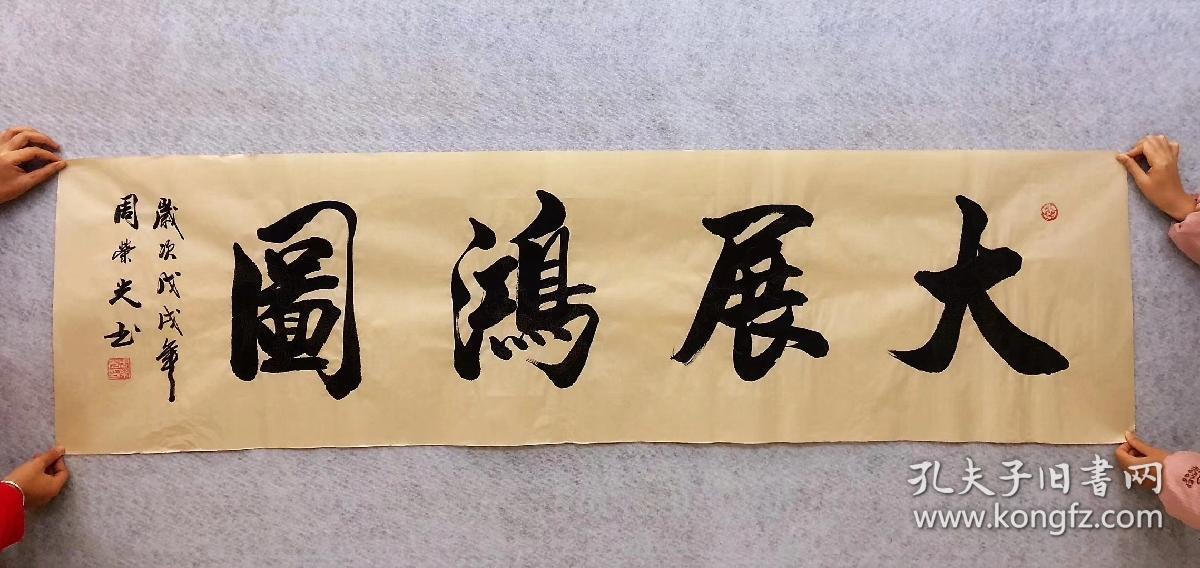 大展鴻圖
歲次戊戌年
周榮光书
孔夫子旧書网
www.kongfz.com